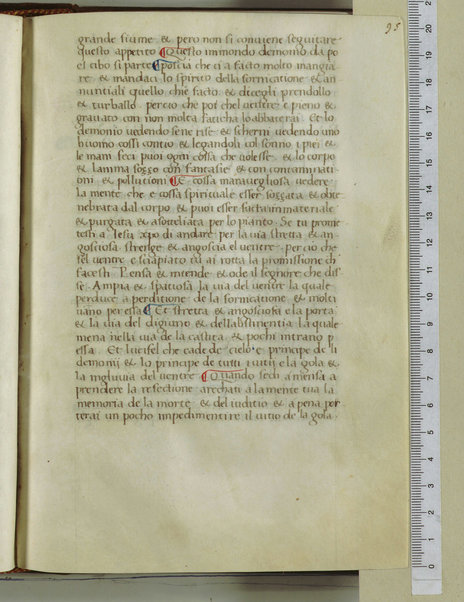 95
grande fiume & pero non si conviene seguitare
questo appetito Questo immondo demonio da po
el cibo si parte poscia che ci a facto molto mangia
re & mandaci lo spirito della fornicatione & an
nuntiali quello chie facto & dicegli prendollo
& turballo percio che poi chel ventre e pieno &
gravato con non molta faticha lo abbaterai Et lo
demonio vedendo sene rise & scherni vedendo uno
huomo cossi concio & legandoli col sonno i piei &
le mani feci puoi ogni cossa che volesse & lo corpo
& lamma sozzo con fantasie & con contaminati
oni & pollucioni E cossa maravegliosa vedere
la mente che e cossa spirituale esser sozzata & obte
nebrata dal corpo & puoi esser facta inmateriale
& purgata & asoctiliata per lo pianto Se tu prome
testi a Iesu xpo di andare per la via stretta & an
gosciosa strenge & angoscia el ventre percio che
sel ventre e sciapiato tu ai rotta la promissione ch
facesti Pensa & intende & ode il segnore che dis
se Ampia & spatiosa la via del ventre la quale
perduce a perditione de la fornicatione & molti
vano per essa Et stretta & angosciosa e la porta
& la via del digiuno & dellabstinentia la quale
mena nella via de la castita & pochi intrano p
essa Et lucifel che cade de cielo e principe de li
demonii & lo principe de tutti i vitii e la gola &
la ingluvia del ventre Quando sedi a mensa a
prendere la refectione arechati a la mente tua la
memoria de la morte & del iuditio & a pena por
terai un pocho impedimentire il vitio de la gola
0
1
2
3
4
5
6
7
8
9
10
11
12
13
14
15
16
17
18
19
20